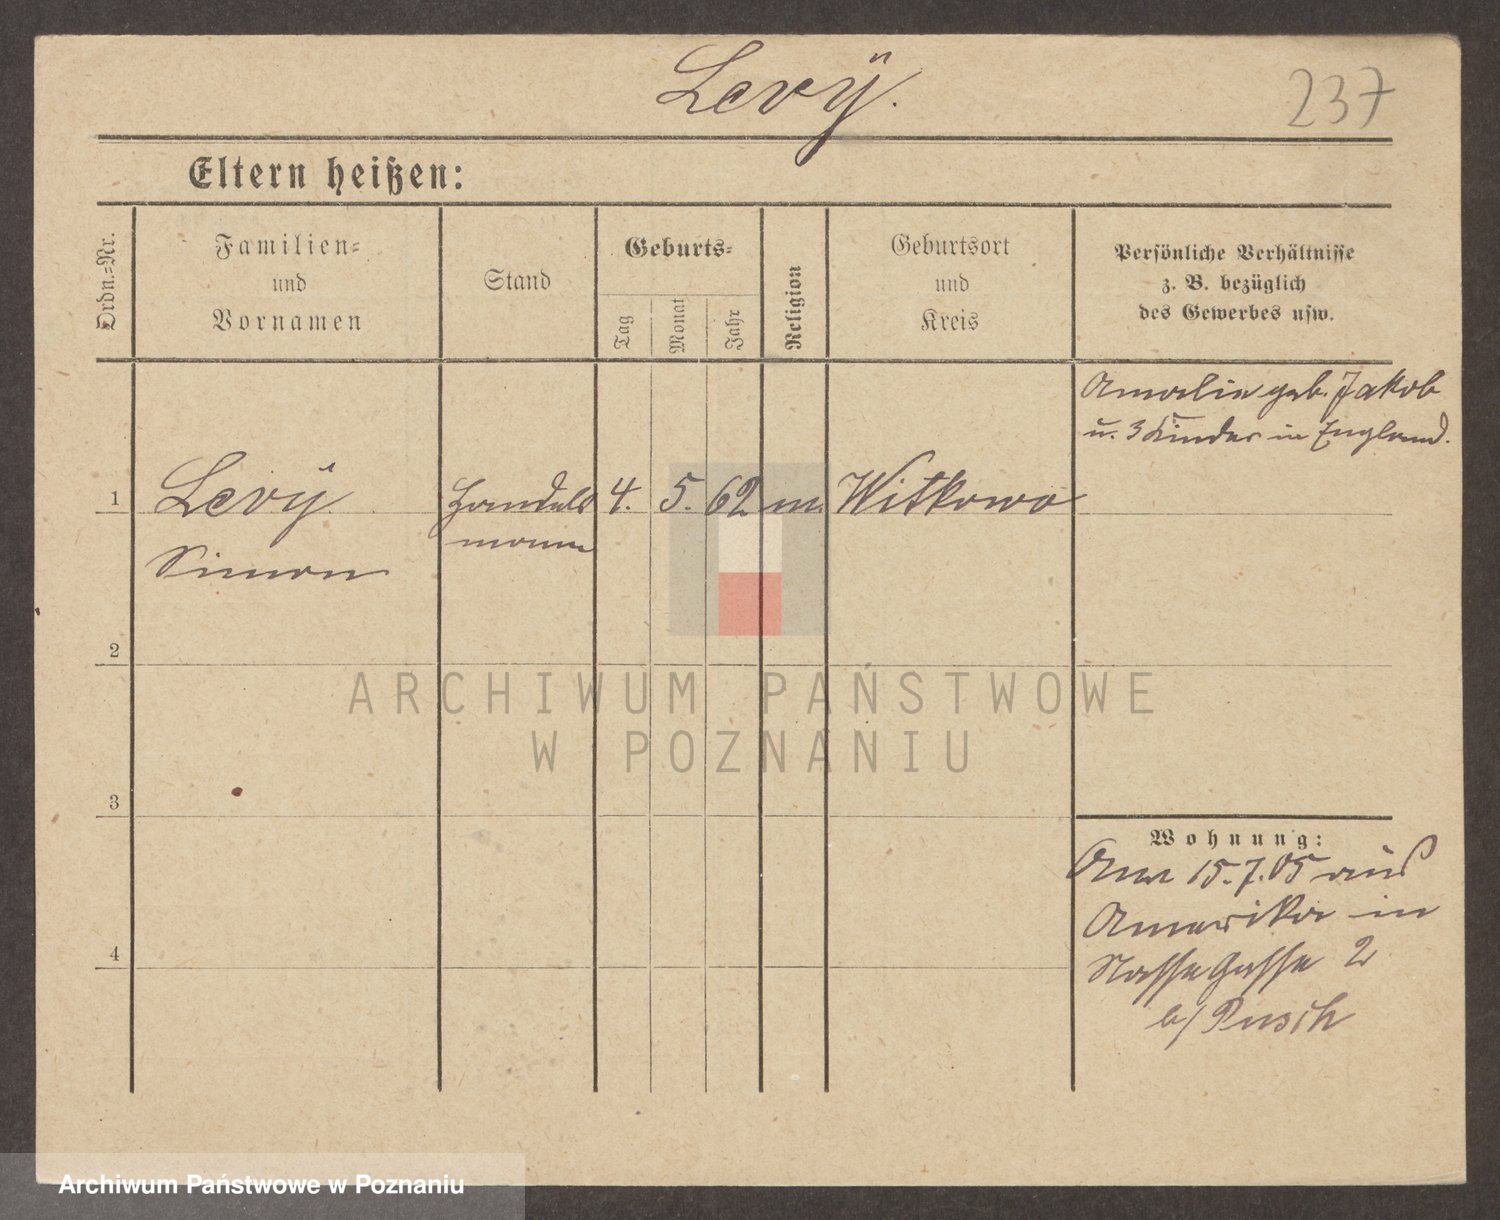 Levÿ.
237
Eltern heißen:
Ordn.=Nr.
Familien=
und
Vornamen
Stand
Geburts=
Tag
Monat
Jahr
Religion
Geburtsort
und
Kreis
Persönliche Verhältnisse
z. B. bezüglich
des Gewerbes usw.
Amalie geb. Jakob
u. 3 Kinder in England.
1
Levÿ
Simon
Handels
mann
4. 5. 62 m. Witkowo
2
ARCHIWUM PAŃSTWOWE
W POZNANIU
3
Wohnung:
Am 15.7.05 aus
Amerika in
4
Nasse Gasse 2
b/ Pusch
Archiwum Państwowe w Poznaniu